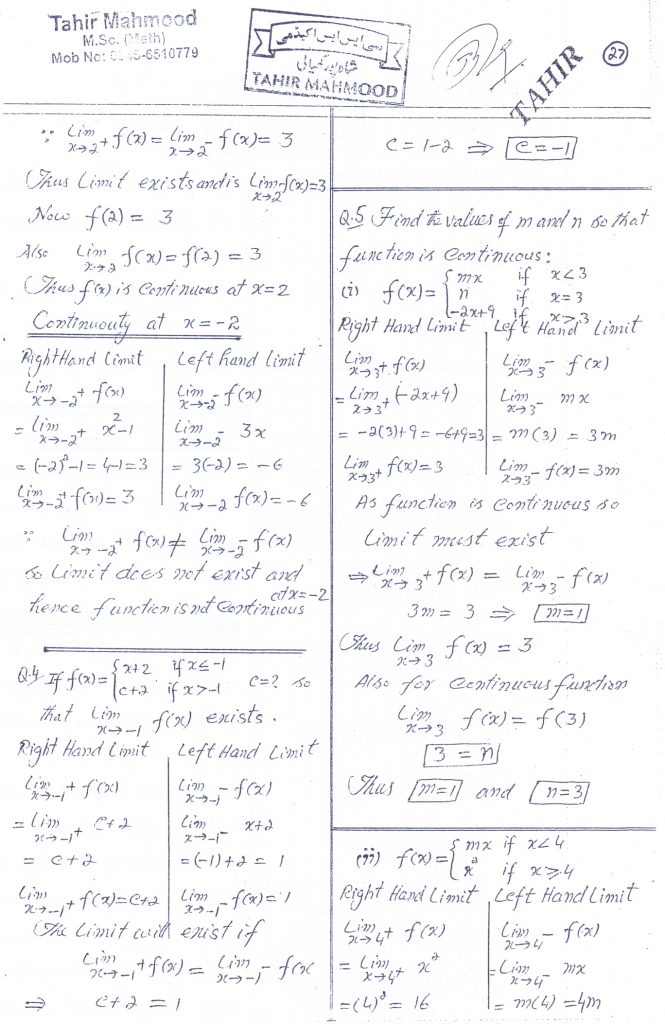 Tahir Mahmood
M.Sc. (Math)
سی ایس ایس اکیڈمی
شاہ پور کنجیالی
TAHIR MAHMOOD
TAHIR
27
∵ Lim x→2⁺ f(x) = Lim x→2⁻ f(x) = 3
Thus Limit exists and is Lim x→2 f(x) = 3
Now f(2) = 3
Also Lim x→2 f(x) = f(2) = 3
Thus f(x) is Continuous at x=2
Continuouty at x = -2
Right Hand Limit | Left hand limit
Lim x→-2⁺ f(x) | Lim x→-2⁻ f(x)
= Lim x→-2⁺ x²-1 | Lim x→-2⁻ 3x
= (-2)²-1 = 4-1 = 3 | = 3(-2) = -6
Lim x→-2⁺ f(x) = 3 | Lim x→-2⁻ f(x) = -6
∵ Lim x→-2⁺ f(x) ≠ Lim x→-2⁻ f(x)
so Limit does not exist and
hence function is not Continuous at x=-2
Q.4 If f(x) = { x+2 if x ≤ -1
c+2 if x > -1 c=? so
that Lim x→-1 f(x) exists.
Right Hand Limit | Left Hand Limit
Lim x→-1⁺ f(x) | Lim x→-1⁻ f(x)
= Lim x→-1⁺ c+2 | Lim x→-1⁻ x+2
= c+2 | = (-1)+2 = 1
Lim x→-1⁺ f(x) = c+2 | Lim x→-1⁻ f(x) = 1
The Limit will exist if
Lim x→-1⁺ f(x) = Lim x→-1⁻ f(x
⇒ c+2 = 1
c = 1-2 ⇒ c = -1
Q.5 Find the values of m and n so that
function is Continuous:
(i) f(x) = { mx if x<3
n if x=3
-2x+9 if x>3
Right Hand Limit | Left Hand Limit
Lim x→3⁺ f(x) | Lim x→3⁻ f(x)
= Lim x→3⁺ (-2x+9) | Lim x→3⁻ mx
= -2(3)+9 = -6+9=3 | = m(3) = 3m
Lim x→3⁺ f(x) = 3 | Lim x→3⁻ f(x) = 3m
As function is continuous so
Limit must exist
⇒ Lim x→3⁺ f(x) = Lim x→3⁻ f(x)
3m = 3 ⇒ m=1
Thus Lim x→3 f(x) = 3
Also for Continuous function
Lim x→3 f(x) = f(3)
3 = n
Thus m=1 and n=3
(ii) f(x) = { mx if x<4
x² if x⩾4
Right Hand Limit | Left Hand Limit
Lim x→4⁺ f(x) | Lim x→4⁻ f(x)
= Lim x→4⁺ x² | = Lim x→4⁻ mx
= (4)² = 16 | = m(4) = 4m